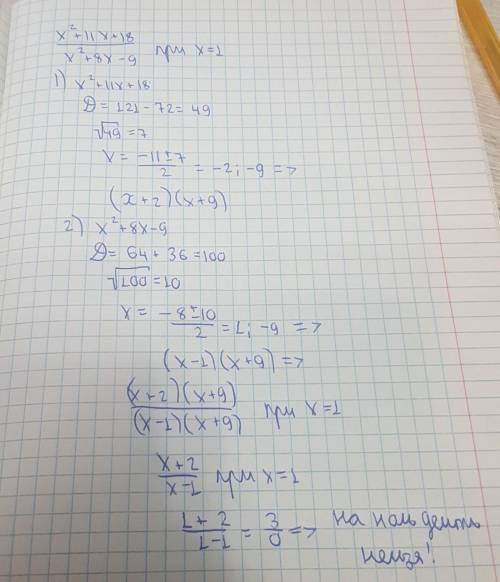 x²+11x+18 / x²+8x-9 при x=1
1) x²+11x+18
D = 121-72=49
√49=7
x = -11±7 / 2 = -2; -9 =>
(x+2)(x+9)
2) x²+8x-9
D= 64+36=100
√100=10
x= -8±10 / 2 = 1; -9 =>
(x-1)(x+9) =>
(x+2)(x+9) / (x-1)(x+9) при x=1
x+2 / x-1 при x=1
1+2 / 1-1 = 3 / 0 => на ноль делить
нельзя!